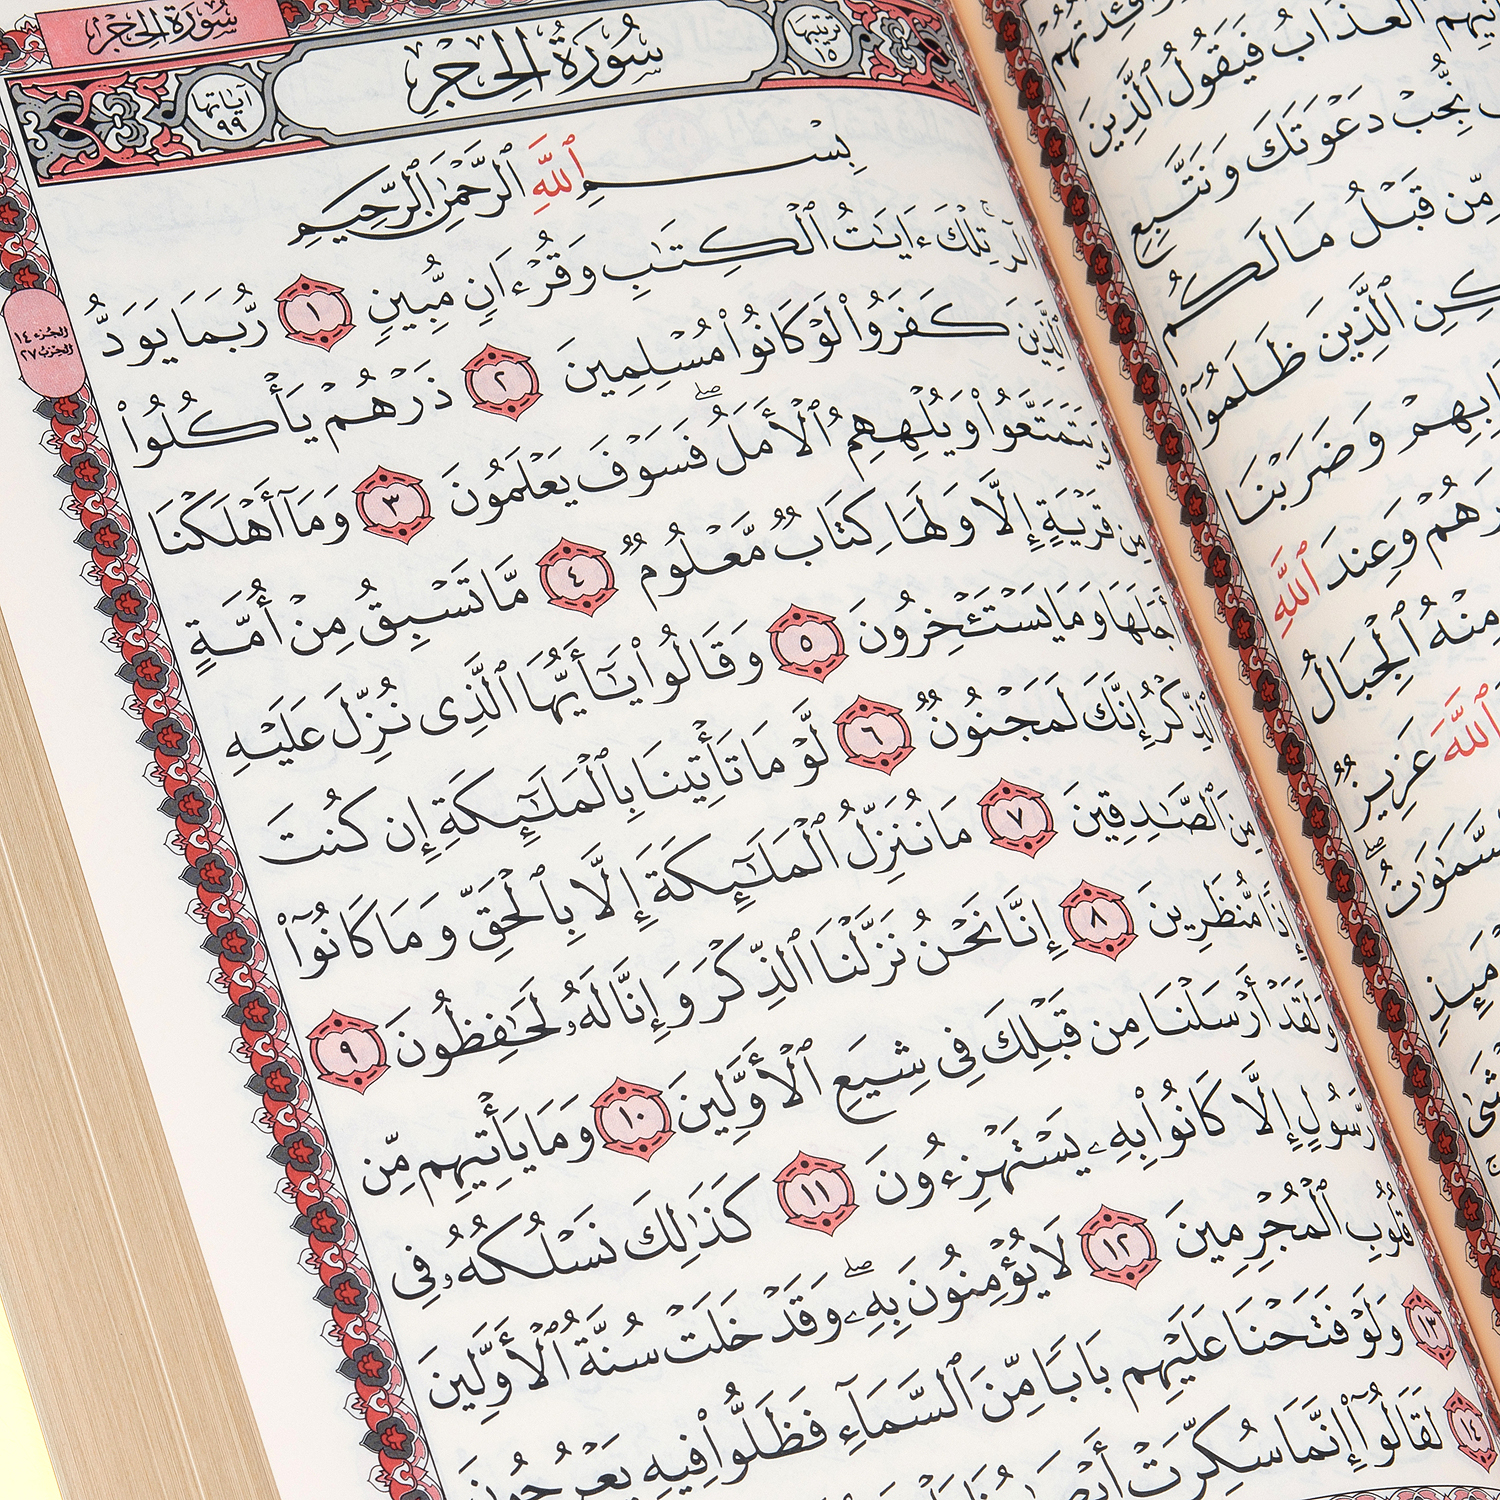 سُورَةُ الحِجْر
آيَاتُهَا ٩٩
سُورَةُ الحِجْر
تَرتيبُهَا ١٥
بِسْمِ ٱللَّهِ ٱلرَّحْمَٰنِ ٱلرَّحِيمِ
الٓرۚ تِلْكَ ءَايَٰتُ ٱلْكِتَٰبِ وَقُرْءَانٍ مُّبِينٍ ١ رُّبَمَا يَوَدُّ
ٱلَّذِينَ كَفَرُوا۟ لَوْ كَانُوا۟ مُسْلِمِينَ ٢ ذَرْهُمْ يَأْكُلُوا۟
وَيَتَمَتَّعُوا۟ وَيُلْهِهِمُ ٱلْأَمَلُۖ فَسَوْفَ يَعْلَمُونَ ٣ وَمَآ أَهْلَكْنَا
مِن قَرْيَةٍ إِلَّا وَلَهَا كِتَابٌ مَّعْلُومٌ ٤ مَّا تَسْبِقُ مِنْ أُمَّةٍ
أَجَلَهَا وَمَا يَسْتَـْٔخِرُونَ ٥ وَقَالُوا۟ يَٰٓأَيُّهَا ٱلَّذِى نُزِّلَ عَلَيْهِ
ٱلذِّكْرُ إِنَّكَ لَمَجْنُونٌ ٦ لَّوْ مَا تَأْتِينَا بِٱلْمَلَٰٓئِكَةِ إِن كُنتَ
مِنَ ٱلصَّٰدِقِينَ ٧ مَا نُنَزِّلُ ٱلْمَلَٰٓئِكَةَ إِلَّا بِٱلْحَقِّ وَمَا كَانُوٓا۟
إِذًا مُّنظَرِينَ ٨ إِنَّا نَحْنُ نَزَّلْنَا ٱلذِّكْرَ وَإِنَّا لَهُۥ لَحَٰفِظُونَ ٩
وَلَقَدْ أَرْسَلْنَا مِن قَبْلِكَ فِى شِيَعِ ٱلْأَوَّلِينَ ١٠ وَمَا يَأْتِيهِم مِّن
رَّسُولٍ إِلَّا كَانُوا۟ بِهِۦ يَسْتَهْزِءُونَ ١١ كَذَٰلِكَ نَسْلُكُهُۥ فِى
قُلُوبِ ٱلْمُجْرِمِينَ ١٢ لَا يُؤْمِنُونَ بِهِۦۖ وَقَدْ خَلَتْ سُنَّةُ ٱلْأَوَّلِينَ
١٣ وَلَوْ فَتَحْنَا عَلَيْهِم بَابًا مِّنَ ٱلسَّمَآءِ فَظَلُّوا۟ فِيهِ يَعْرُجُونَ
١٤ لَقَالُوٓا۟ إِنَّمَا سُكِّرَتْ
الجُزء ١٤
الحِزبُ ٢٧
ٱلْعَذَابُ فَيَقُولُ ٱلَّذِينَ
نُّجِبْ دَعْوَتَكَ وَنَتَّبِعِ
مِّن قَبْلُ مَا لَكُم
ٱلَّذِينَ ظَلَمُوٓا۟
وَضَرَبْنَا
وَعِندَ ٱللَّهِ
مِنْهُ ٱلْجِبَالُ
ٱللَّهَ عَزِيزٌ